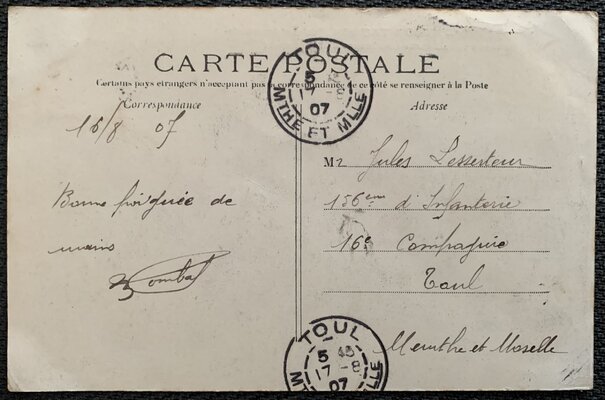 CARTE POSTALE
Certains pays étrangers n'acceptant pas la correspondance de ce côté se renseigner à la Poste
Correspondance
Adresse
16/8 07
Bonne poignée de
mains
TOUL
5
17 -8
07
MTHE ET MLLE
Mr Jules Lesserteur
156ème d'Infanterie
16e Compagnie
Toul
Meurthe et Moselle
TOUL
5 45
17 -8
07